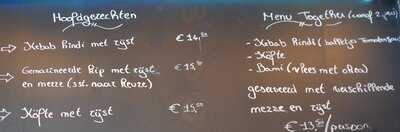 Hoofdgerechten
→ Kebab Rindi met rijst € 14,50
→ Gemarineerde Kip met rijst € 15,50
en mezze (sst. naar Keuze)
→ Köfte met rijst € 15,50
Menu Together (vanaf 2 pers)
- Kebab Rindi (balletjes Tomatensaus)
- Köfte
- Bami (vlees met okra)
geserveerd met verschillende
mezze en rijst
€ 13,50 / persoon